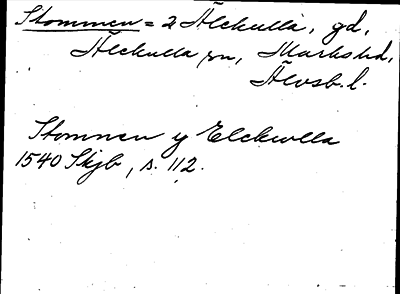 Stommen = 2 Älekulla, gd,
Älekulla sn, Marks hd,
Älvsb. l.
Stomnen y Elekwlla
1540 Skjb, s. 112.